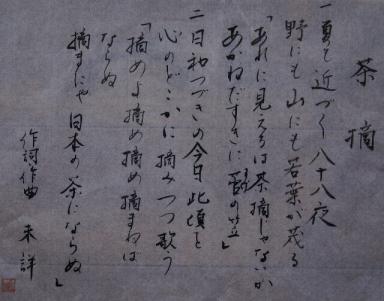 茶摘
一 夏も近づく八十八夜
野にも山にも若葉が茂る
「あれに見えるは茶摘じゃないか
あかねだすきに の笠」
二 日和つづきの今日此頃を
心のどかに摘みつつ歌う
「摘めよ摘め摘め摘まねば
ならぬ
摘まにゃ日本の茶にならぬ」
作詞作曲 未詳